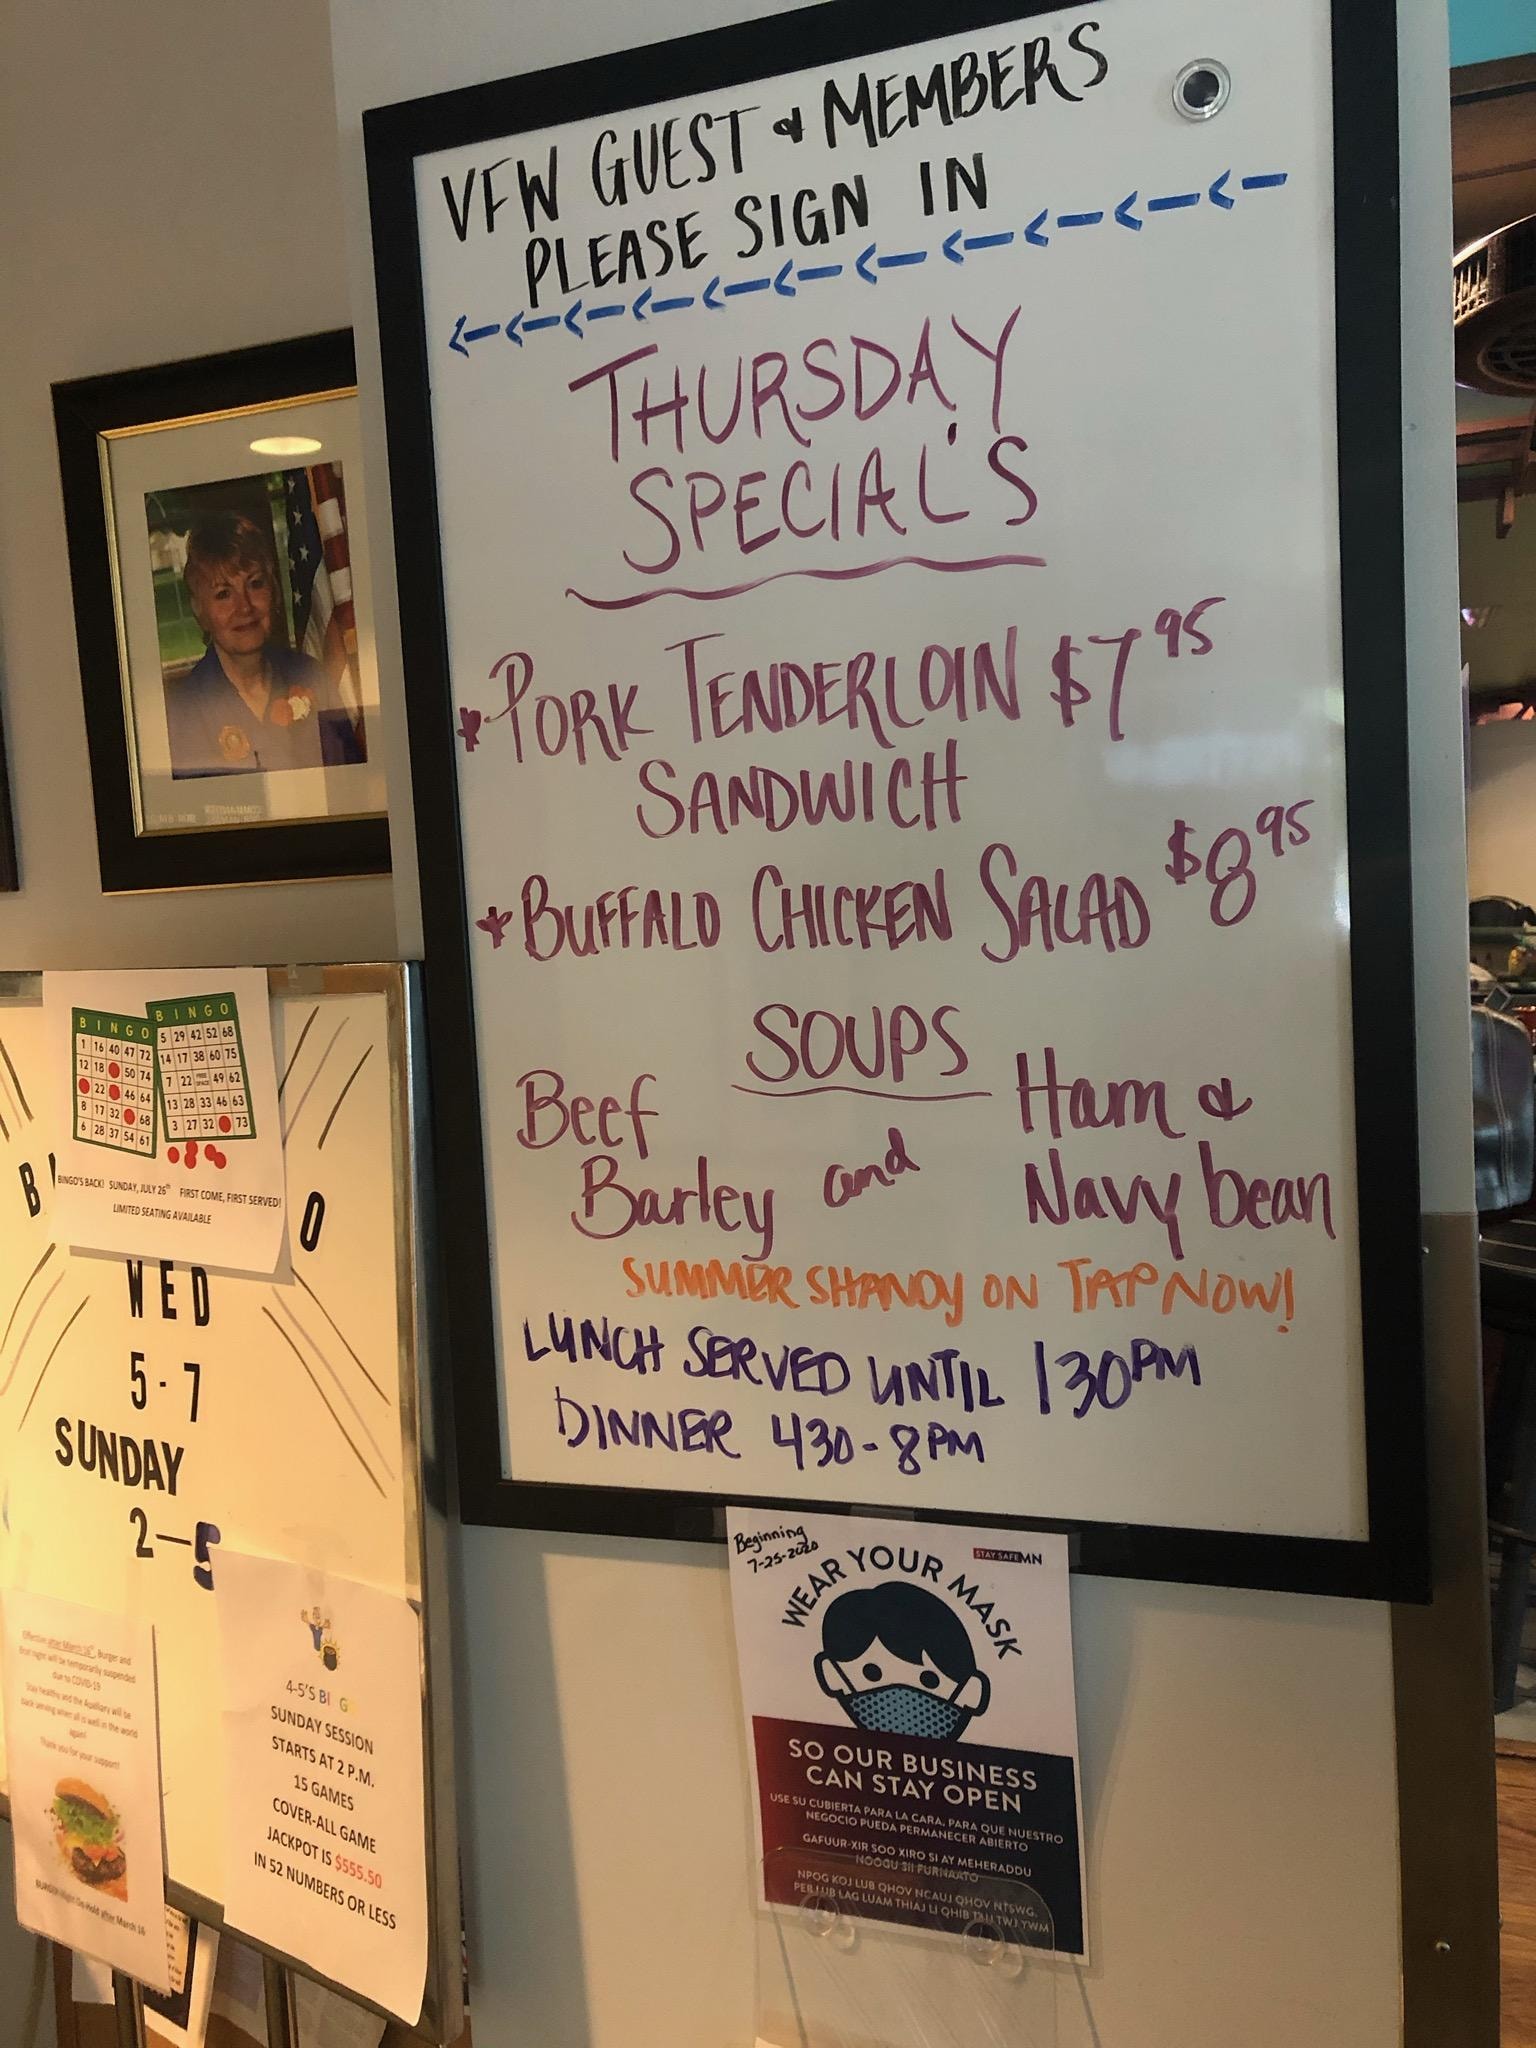 VFW GUEST & MEMBERS
PLEASE SIGN IN
THURSDAY
SPECIAL'S
* PORK TENDERLOIN $7 95
SANDWICH
* BUFFALO CHICKEN SALAD $8 95
SOUPS
Beef
Barley
and
Ham &
Navy bean
SUMMER SHANDY ON TAP NOW!
LUNCH SERVED UNTIL 130PM
DINNER 430-8PM
B I N G O
1 16 40 47 72
12 18 50 74
22 46 64
8 17 32 68
6 28 37 54 61
B I N G O
5 29 42 52 68
14 17 38 60 75
7 22 FREE SPACE 49 62
13 28 33 46 63
3 27 32 73
BINGO'S BACK! SUNDAY, JULY 26th FIRST COME, FIRST SERVED!
LIMITED SEATING AVAILABLE
B O
WED
5-7
SUNDAY
2-5
Effective after March 16th, Burger and
Brat night will be temporarily suspended
due to COVID-19
Stay healthy and the Auxiliary will be
back serving when all is well in the world
again!
Thank you for your support!
BURGER Night On Hold after March 16
4-5'S BI G
SUNDAY SESSION
STARTS AT 2 P.M.
15 GAMES
COVER-ALL GAME
JACKPOT IS $555.50
IN 52 NUMBERS OR LESS
Beginning
7-25-2020
STAY SAFE MN
WEAR YOUR MASK
SO OUR BUSINESS
CAN STAY OPEN
USE SU CUBIERTA PARA LA CARA, PARA QUE NUESTRO
NEGOCIO PUEDA PERMANECER ABIERTO
GAFUUR-XIR SOO XIRO SI AY MEHERADDU
NOOGU SII FURNAATO
NPOG KOJ LUB QHOV NCAUJ QHOV NTSWG,
PEB LUB LAG LUAM THIAJ LI QHIB TAU TWJ YWM